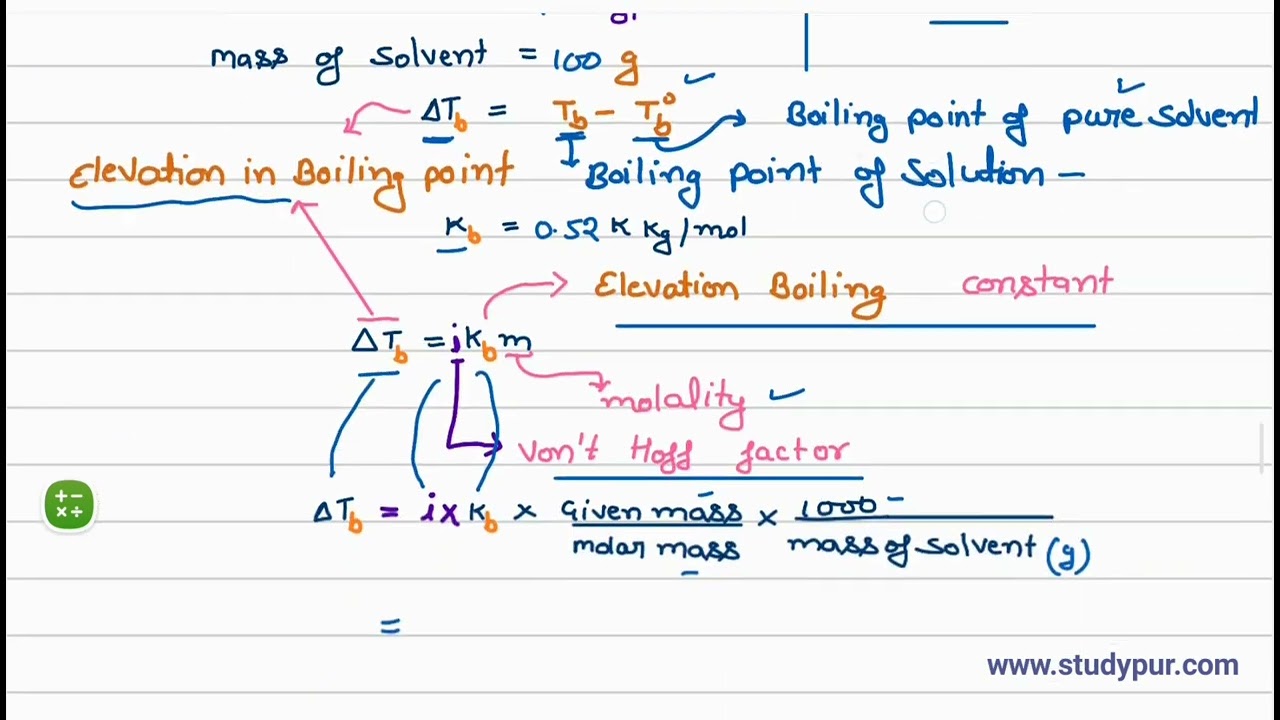 mass of solvent = 100 g
ΔTb = Tb - Tb° Boiling point of pure solvent
Elevation in Boiling point Boiling point of solution -
Kb = 0.52 K Kg/mol
Elevation Boiling constant
ΔTb = i Kb m
molality
Von't Hoff factor
ΔTb = i x Kb x Given mass / molar mass x 1000 / mass of solvent (g)
=
www.studypur.com